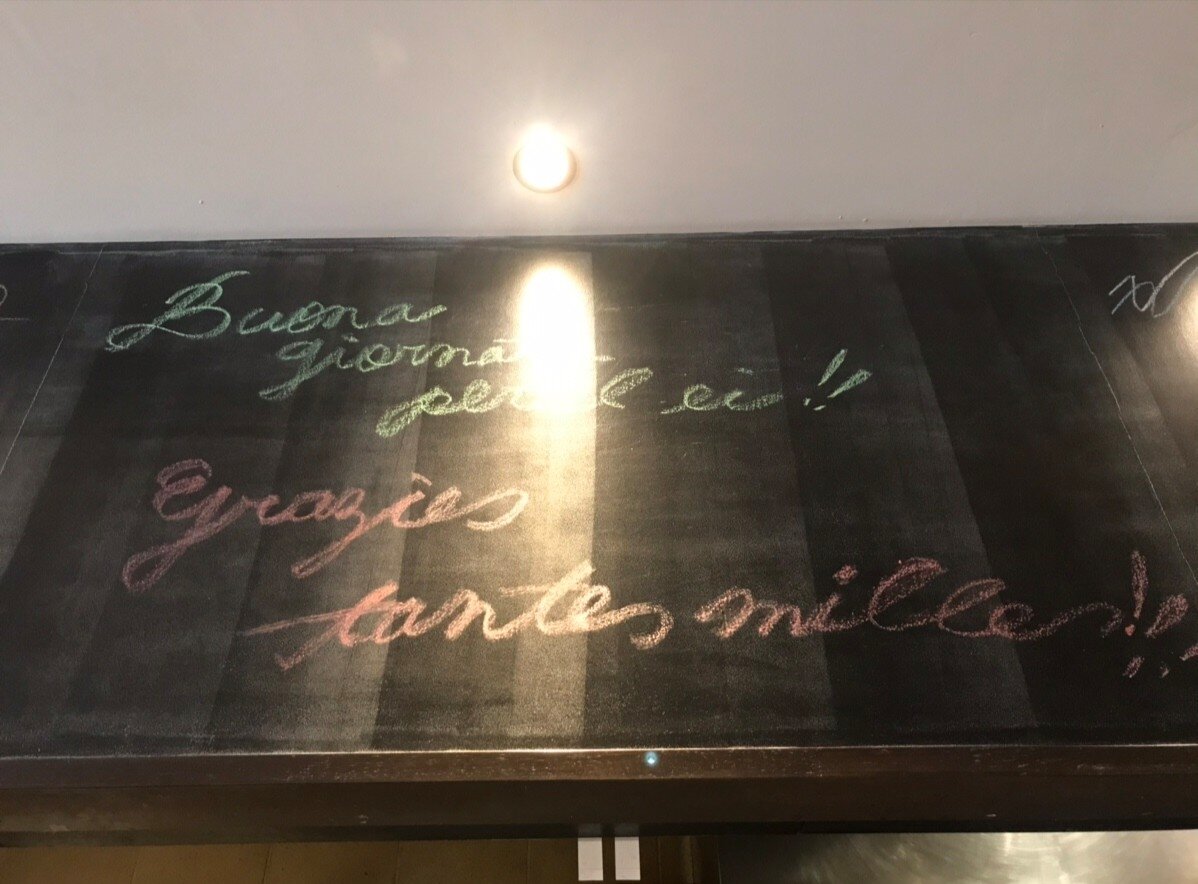 Buona
giornata
per l ei!!
Grazies
tantes milles!!